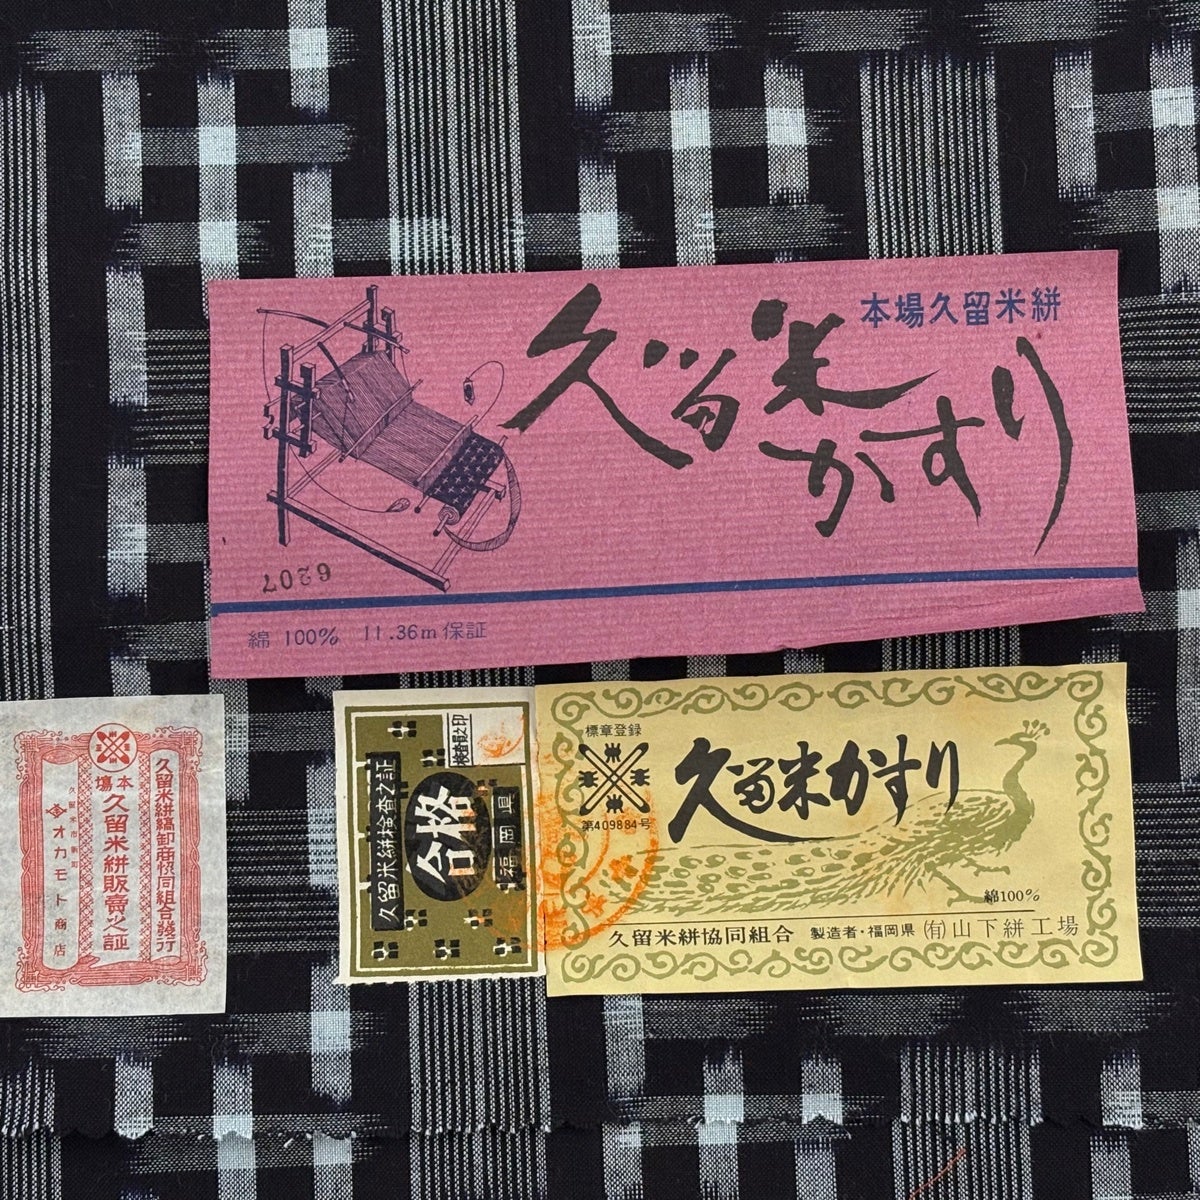 本場久留米絣
久留米かすり
6207
綿 100% 11.36m 保証
久留米絣縞卸商協同組合發行
本場
久留米絣販賣之証
久留米市新町
オカモト商店
検査員之印
久留米絣検査之証
合格
福岡県
標章登録
第409884号
久留米かすり
綿100%
久留米絣協同組合 製造者・福岡県 (有)山下絣工場